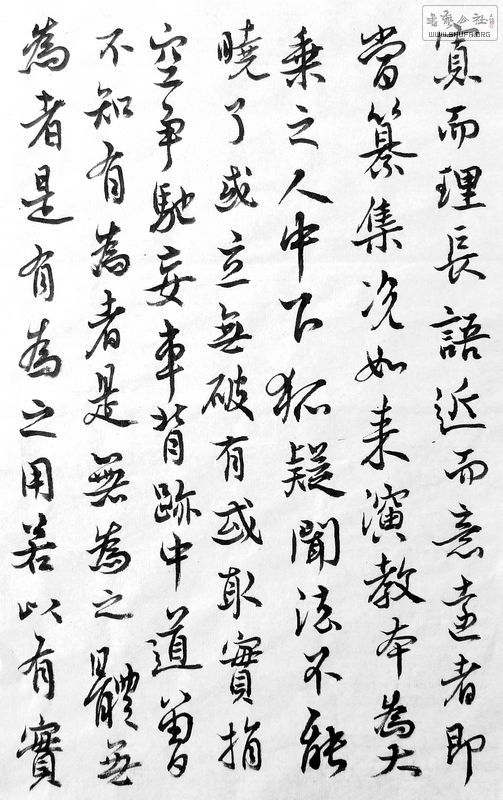 寡而理長語近而意遠者即
當纂集况如来演教本為大
乗之人中下狐疑聞法不能
曉了或立無破有或取實捐
空争馳妄車背跡中道曾
不知有為者是無為之體無
為者是有為之用若以有實
書藝公社
WWW.SHUFA.ORG